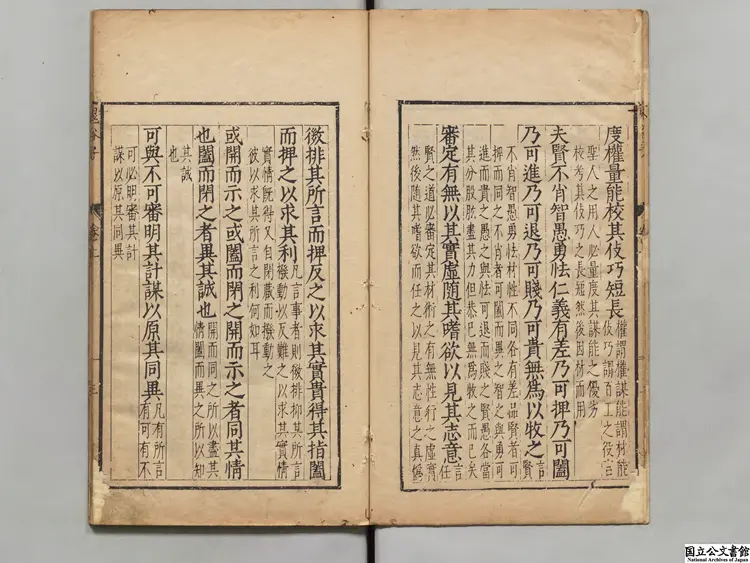 度權量能校其伎巧短長
權謂權謀能謂材能
伎巧謂百工之役言
聖人之用人必量度其謀能之優劣
校考其伎巧之長短然後因材而用
夫賢不肖智愚勇怯仁義有差乃可捭乃可闔
乃可進乃可退乃可賤乃可貴無為以牧之
言
賢
不肖智愚勇怯材性不同各有差品賢者可
捭而同之不肖者可闔而異之智之與勇可
進而貴之愚之與怯可退而賤之賢愚各當
其分股肱盡其力但恭巳無為牧之而巳矣
審定有無以其實虛隨其嗜欲以見其志意
言
任
賢之道必審定其材術之有無性行之虛實
然後隨其嗜欲而任之以見其志意之真偽
微排其所言而捭反之以求其實貴得其指闔
而捭之以求其利
凡言事者則微排抑其所言
撥動以反難之以求其實情
實情既得又自閉藏而撥動之
彼以求其所言之利何如耳
或開而示之或闔而閉之開而示之者同其情
也闔而閉之者異其誠也
開而同之所以盡其
情闔而異之所以知
其誠
也
可與不可審明其計謀以原其同異
凡有所言
有可有不
可必明審其計
謀以原其同異
鬼谷子
卷上
国立公文書館
National Archives of Japan